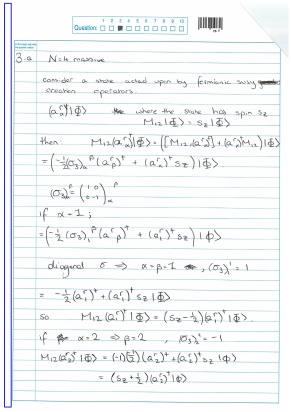 1 2 3 4 5 6 7 8 9 10
Question:
3.a N=4 massive
Consider a state acted upon by fermionic susy
creation operators.
(a^r_α)†|Φ⟩ where the state has spin s_z
M₁₂|Φ⟩ = s_z|Φ⟩
then: M₁₂(a^r_α)†|Φ⟩ = ([M₁₂,(a^r_α)†]+(a^r_α)†M₁₂)|Φ⟩
= (-½(σ₃)_α^β (a^r_β)† + (a^r_α)† s_z)|Φ⟩.
(σ₃)_α^β = (1 0
0 -1)_α^β
if α=1;
= (-½(σ₃)₁^β (a^r_β)† + (a^r_1)† s_z)|Φ⟩
diagonal σ ⇒ α=β=1, (σ₃)₁^1 = 1
= -½(a^r_1)† + (a^r_1)† s_z|Φ⟩
so M₁₂(a^r_1)†|Φ⟩ = (s_z-½)(a^r_1)†|Φ⟩
if α=2 ⇒ β=2, (σ₃)₂^2 = -1
M₁₂(a^r_2)†|Φ⟩ = (-1)(-½)(a^r_2)† + (a^r_2)† s_z|Φ⟩
= (s_z+½)(a^r_2)†|Φ⟩